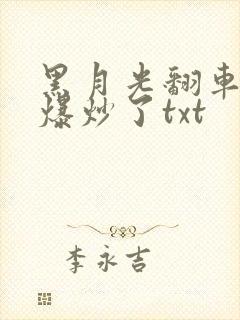 黑月光翻車
爆炒了txt
李永吉